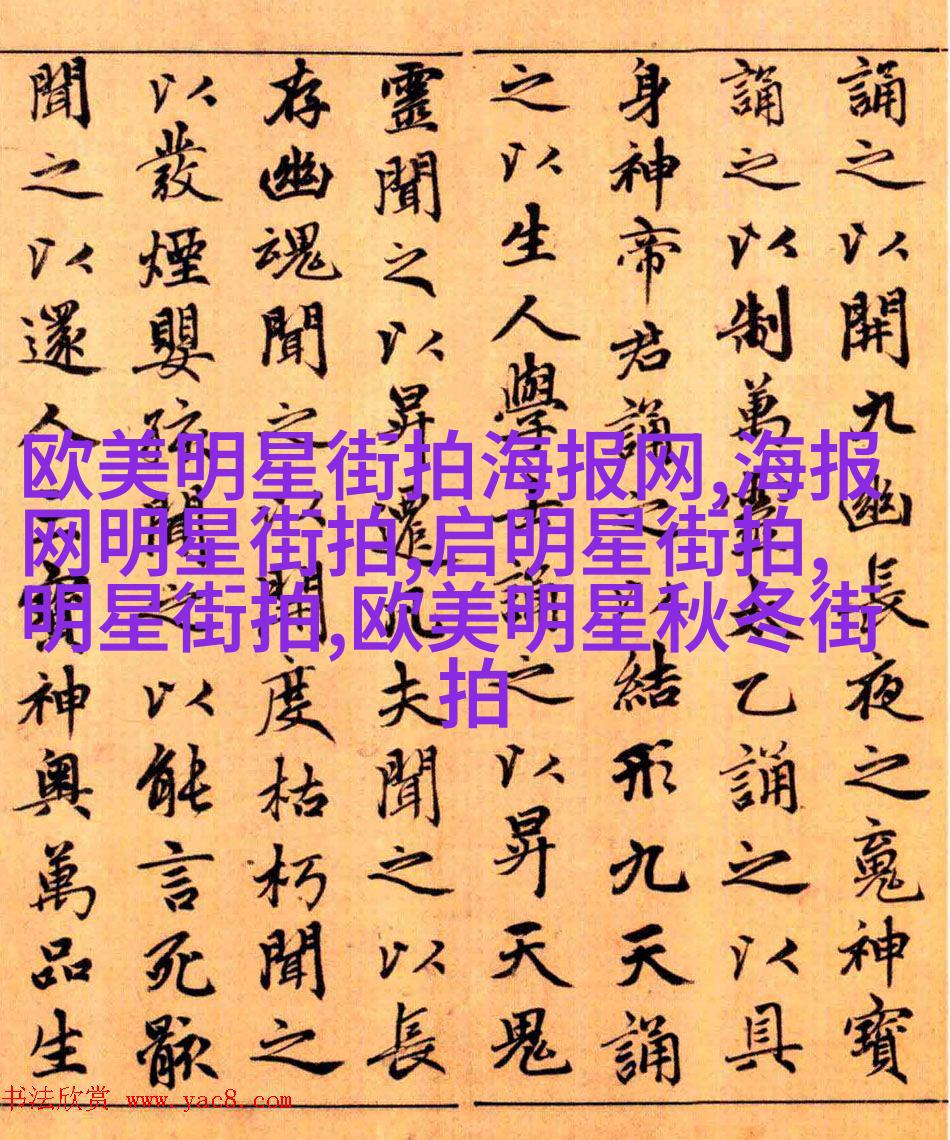 誦之以開九幽長夜之魂神寶
誦之以制萬靈太乙誦之以具
身神帝君誦之以結形九天誦
之以生人學士誦之以昇天鬼
靈聞之以昇遷凡夫聞之以長
存幽魂聞之以開度枯朽聞之
以發煙嬰孩聞之以能言死骸
聞之以還人三寶神奧萬品生
欧美明星街拍海报网,海报
网明星街拍,启明星街拍,
明星街拍,欧美明星秋冬街
拍
书法欣赏 www.yac8.com